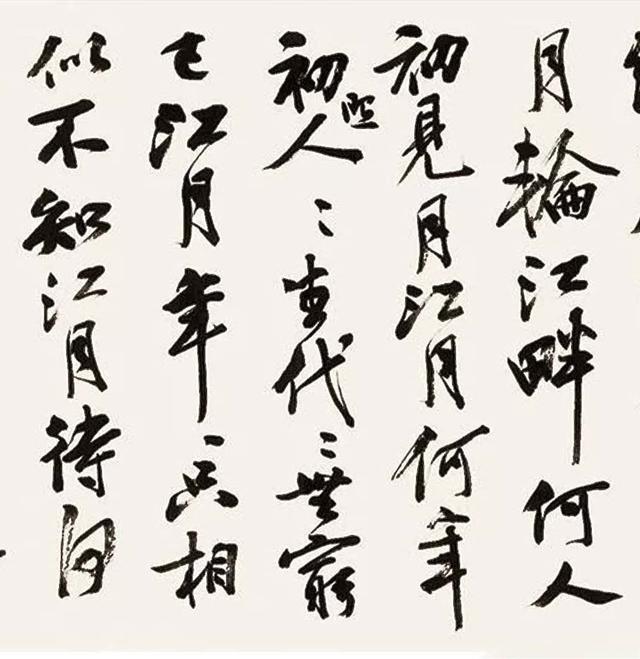 月輪江畔何人
初見月江月何年
初照人〻生代〻無窮
已江月年〻只相
似不知江月待何